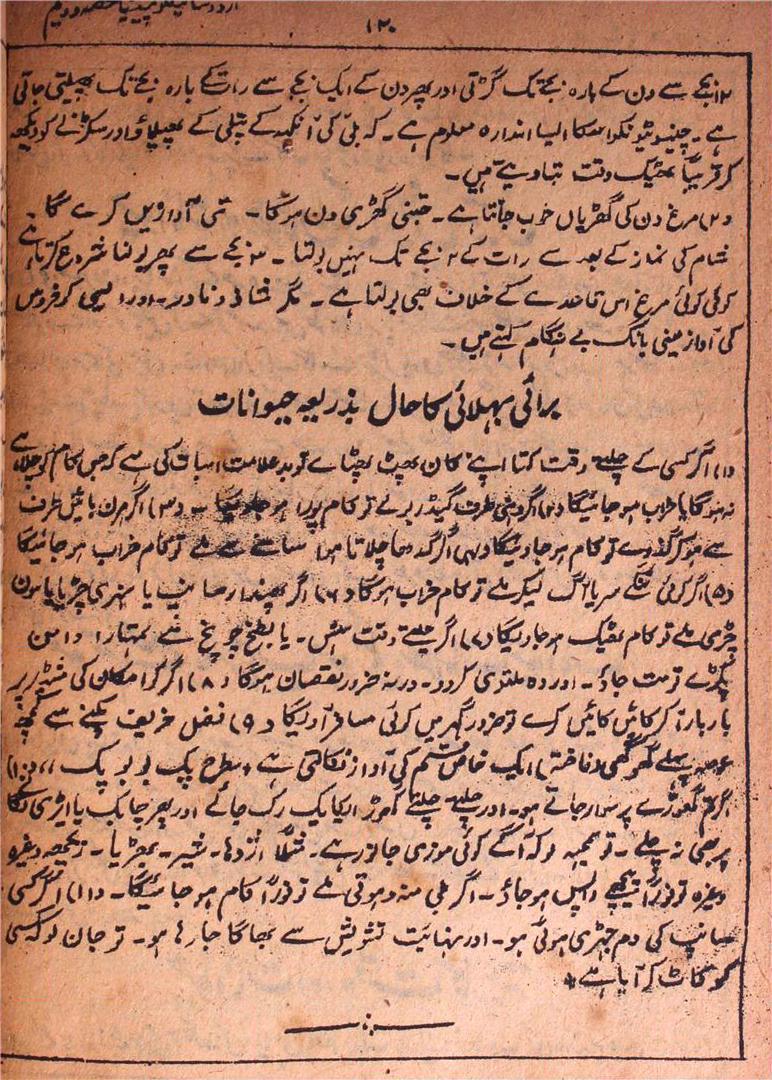 اردو سائیکلو پیڈیا حصہ دوئم
۱۲۰
۱۲ بجے سے دن کے بارہ بجے تک گڑتی اور پھر دن کے ایک بجے سے رات کے بارہ بجے تک پھیلتی جاتی
ہے۔ چینیوں کو اسکا ایسا اندازہ معلوم ہے۔ کہ بلی کی آنکھ کے پتلی کے پھیلاؤ اور سکڑنے کو دیکھ
کر قریباً ٹھیک وقت بتا دیتے ہیں۔
(۲) مرغ دن کی گھڑیاں خوب جانتا ہے۔ جتنی گھڑی دن ہوگا۔ تنی آوازیں کرے گا۔
شام کی نماز کے بعد سے رات کے ۲ بجے تک نہیں بولتا۔ ۳ بجے سے پھر بولنا شروع کرتا ہے
کوئی کوئی مرغ اس قاعدے کے خلاف بھی بولتا ہے۔ مگر شاذ و نادر۔ اور ایسی
کی آواز یعنی بانگ بے ہنگام کہتے ہیں۔
برائی بھلائی کا حال بذریعہ حیوانات
(۱) اگر کسی کے چلتے وقت کتا اپنے کان پھٹ پھٹائے تو بد علامت اسبات کی ہے کہ جس کام کو چلا ہے
نہ ہوگا یا خراب ہو جائیگا (۲) اگر دہنی طرف گیدڑ بولے تو کام پورا ہو جاویگا۔ (۳) اگر ہرن بائیں طرف
سے ہو کر گذرے تو کام ہو جاویگا (۴) اگر گدھا چلاتا ہوا سامنے سے ملے تو کام خراب ہو جائیگا
(۵) اگر کوئی ننگے سر یا آگ لیکر ملے تو کام خراب ہوگا (۶) اگر پھندار سانپ یا سنہری چڑیا یا سون
چڑی ملے تو کام ٹھیک ہو جاویگا (۷) اگر چلتے وقت ہنس۔ یا بطخ چونچ سے تمہارا دامن
پکڑے تو مت جاؤ۔ اور وہ ملتوی کردو۔ ورنہ ضرور نقصان ہوگا (۸) اگر کوا مکان کی منڈیر پر
بار بار آکر کائیں کائیں کرے تو ضرور گھر میں کوئی مسافر آویگا (۹) فصل خریف پکنے سے کچھ
عرصہ پہلے گھوگھی (فاختہ) ایک خاص قسم کی آواز نکالتی ہے اسطرح پک بو بو پک ،، (۱۰)
اگر تم گھوڑے پر سوار جاتے ہو۔ اور چلتے چلتے گھوڑا یکایک رک جائے اور پھر چابک یا ایڑی لگانے
پر بھی نہ چلے۔ تو سمجھ لو کہ آگے کوئی موذی جانور ہے۔ مثلاً اژدہا۔ شیر۔ بھیڑیا۔ ریچھ وغیرہ
وغیرہ تو فوراً پیچھے واپس ہو جاؤ۔ اگر بلی منہ دھوتی ملے تو فوراً کام ہو جائیگا۔ (۱۱) اگر کسی
سانپ کی دم چڑھی ہوئی ہو۔ اور نہایت تشویش سے بھاگا جا رہا ہو۔ تو جان لو کہ کسی
کو کاٹ کر آیا ہے